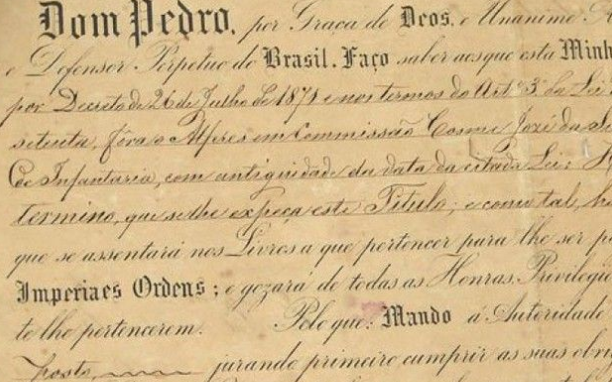 Dom Pedro, por Graça de Deos, e Unanime
e Defensor Perpetuo do Brasil. Faço saber aos que esta Minh
por Decreto de 26 de Julho de 1871 e nos termos do Artº 3º da Lei
setenta, fóra o Alferes em Commissão Cosme José da
de Infantaria, com antiguidade da data da citada Lei:
termino, que se lhe expeça este Titulo; e como tal, ha
que se assentará nos Livros a que pertencer para lhe ser
Imperiaes Ordens; e gozará de todas as Honras, Privilegi
te lhe pertencerem. Pelo que: Mando á Autoridade
Posto, jurando primeiro cumprir as suas obri